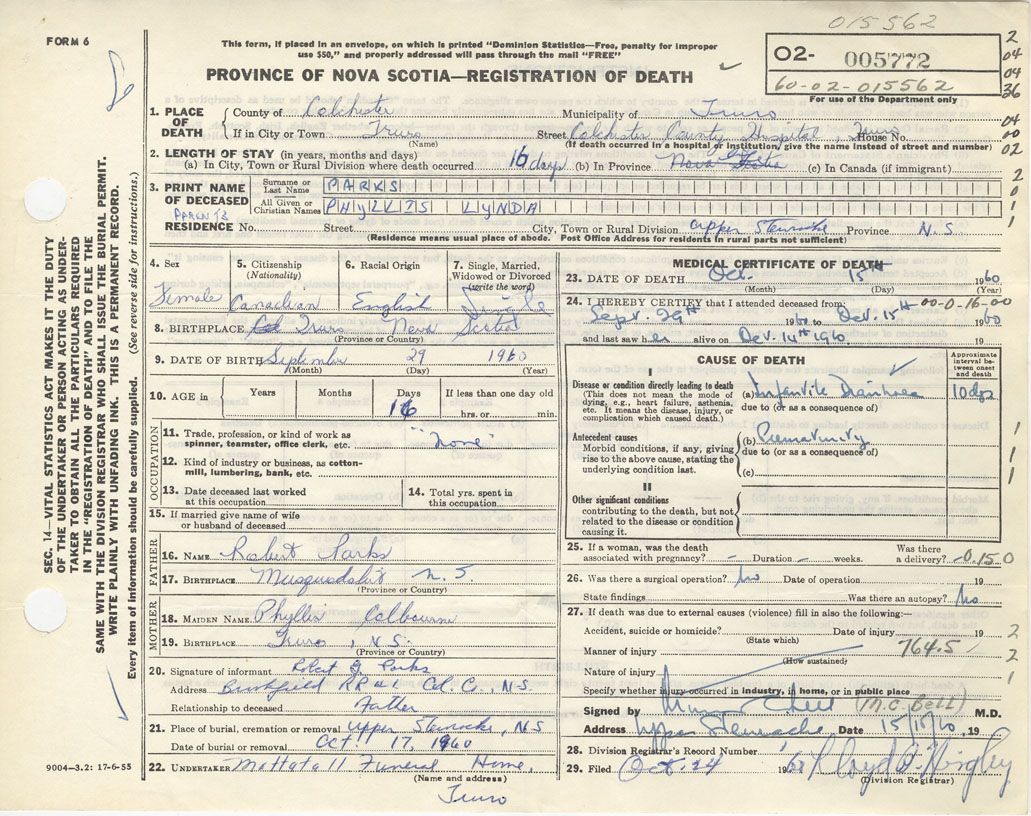 015562
FORM 6
This form, if placed in an envelope, on which is printed "Dominion Statistics—Free, penalty for improper
use $50," and properly addressed will pass through the mail "FREE"
PROVINCE OF NOVA SCOTIA—REGISTRATION OF DEATH
O2- 005772
60-02-015562
For use of the Department only
2
04
04
36
04
00
02
2
0
1
1
SEC. 14—VITAL STATISTICS ACT MAKES IT THE DUTY
OF THE UNDERTAKER OR PERSON ACTING AS UNDER-
TAKER TO OBTAIN ALL THE PARTICULARS REQUIRED
IN THE "REGISTRATION OF DEATH" AND TO FILE THE
SAME WITH THE DIVISION REGISTRAR WHO SHALL ISSUE THE BURIAL PERMIT.
WRITE PLAINLY WITH UNFADING INK. THIS IS A PERMANENT RECORD.
Every item of information should be carefully supplied. (See reverse side for instructions.)
1. PLACE OF DEATH
County of Colchester Municipality of Truro
If in City or Town Truro Street Colchester County Hospital, Truro House No.
(Name) (If death occurred in a hospital or institution, give the name instead of street and number)
2. LENGTH OF STAY (in years, months and days)
(a) In City, Town or Rural Division where death occurred 16 days (b) In Province Nova Scotia (c) In Canada (if immigrant)
3. PRINT NAME OF DECEASED
Surname or Last Name PARKS
All Given or Christian Names PHYLLIS LYNDA
PARENTS
RESIDENCE No. Street City, Town or Rural Division Upper Stewiacke Province N.S.
(Residence means usual place of abode. Post Office Address for residents in rural parts not sufficient)
4. Sex
Female
5. Citizenship
(Nationality)
Canadian
6. Racial Origin
English
7. Single, Married, Widowed or Divorced
(write the word)
Single
8. BIRTHPLACE Truro Nova Scotia
(Province or Country)
9. DATE OF BIRTH September 29 1960
(Month) (Day) (Year)
10. AGE in Years Months Days If less than one day
16 hrs. or min.
OCCUPATION
11. Trade, profession, or kind of work as
spinner, teamster, office clerk, etc. "none"
12. Kind of industry or business, as cotton-
mill, lumbering, bank, etc.
13. Date deceased last worked
at this occupation
14. Total yrs. spent in
this occupation
15. If married give name of wife
or husband of deceased
FATHER
16. NAME Robert Parks
17. BIRTHPLACE Musquodoboit N.S.
(Province or Country)
MOTHER
18. MAIDEN NAME Phyllis Colbourne
19. BIRTHPLACE Truro, N.S.
(Province or Country)
20. Signature of informant Robert G. Parks
Address Brookfield RR #1 Col. Co., N.S.
Relationship to deceased Father
21. Place of burial, cremation or removal Upper Stewiacke, N.S
Date of burial or removal Oct. 17, 1960
22. UNDERTAKER Mattatall Funeral Home,
(Name and address)
Truro
9004—3.2: 17-6-55
MEDICAL CERTIFICATE OF DEATH
23. DATE OF DEATH Oct. 15th 1960
(Month) (Day) (Year)
24. I HEREBY CERTIFY that I attended deceased from: 00-0-16-00
Sept. 29th 1960 to Oct. 15th 1960
and last saw her alive on Oct. 14th 1960 19
CAUSE OF DEATH
Approximate interval between onset and death
I
Disease or condition directly leading to death
(This does not mean the mode of
dying, e.g., heart failure, asthenia,
etc. It means the disease, injury, or
complication which caused death.)
(a) Infantile Diarrhoea 10 dys
due to (or as a consequence of)
Antecedent causes
Morbid conditions, if any, giving
rise to the above cause, stating the
underlying condition last.
(b) Prematurity
due to (or as a consequence of)
(c)
1
1
1
II
Other significant conditions
contributing to the death, but not
related to the disease or condition
causing it.
25. If a woman, was the death
associated with pregnancy? – Duration weeks. Was there
a delivery? -0.150
26. Was there a surgical operation? No Date of operation 19
State findings Was there an autopsy? No
27. If death was due to external causes (violence) fill in also the following:—
Accident, suicide or homicide? Date of injury 19 2
(State which)
Manner of injury 764.5 2
(How sustained)
Nature of injury 1
Specify whether injury occurred in industry, in home, or in public place
Signed by (M.C. BELL) M.D.
Address Upper Stewiacke Date 15/10/60, 19
28. Division Registrar's Record Number
29. Filed Oct. 24 1960
(Division Registrar)